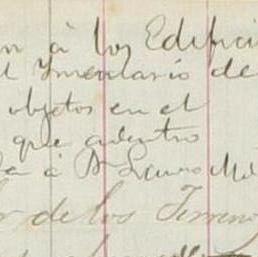 n á los Edifici
l Ymentario de
objetos en el
que adentro
a á D Lauro Me
r de los Terreno